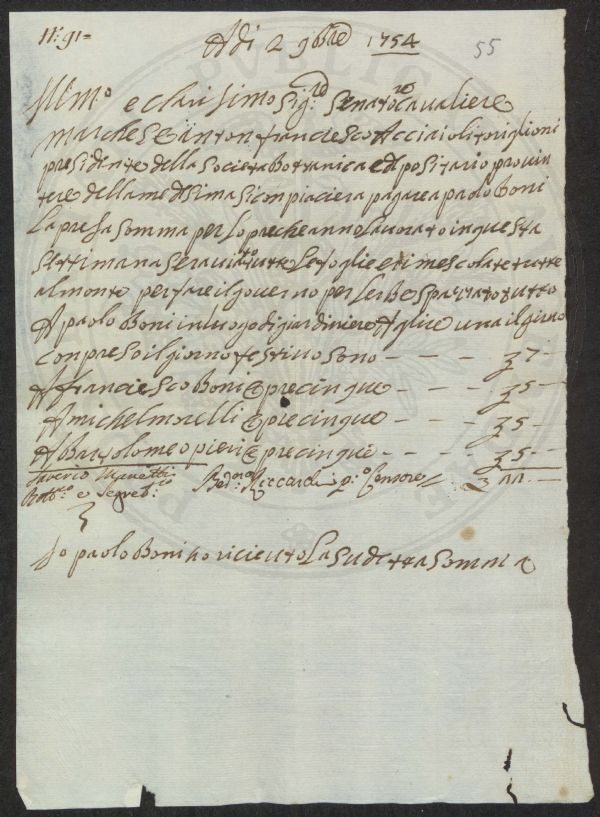 N.° 91=
Adi 2 9bre 1754
55
Ill.mo e Clarissimo Sig.re Senatore Cavaliere
Marchese Anton Franciesco Acciaioli toriglioni
presidente della Societa Bottanica e dipositario provin
tere della medesima si conpiaciera pagare a paolo Boni
La presa somma per lopre che anno lavorato in questa
settimana seravitato tutte le foglie e rimescolate tutte
al monte per fare il governo per lerbe spazzato tutto
A paolo Boni in luogo di giardiniere A Lire una il giorno
conpreso il giorno festivo sono - - - - 7 -
A franciesco Boni opre cinque - - - - 5 -
A michel morelli opre cinque - - - - 5 -
A Bartolomeo pieri opre cinque - - - - 5 -
Saverio Manetti Bern.o Riccardi p.o Censore
e Segret.
Io paolo Boni o riceuto La sudetta somma